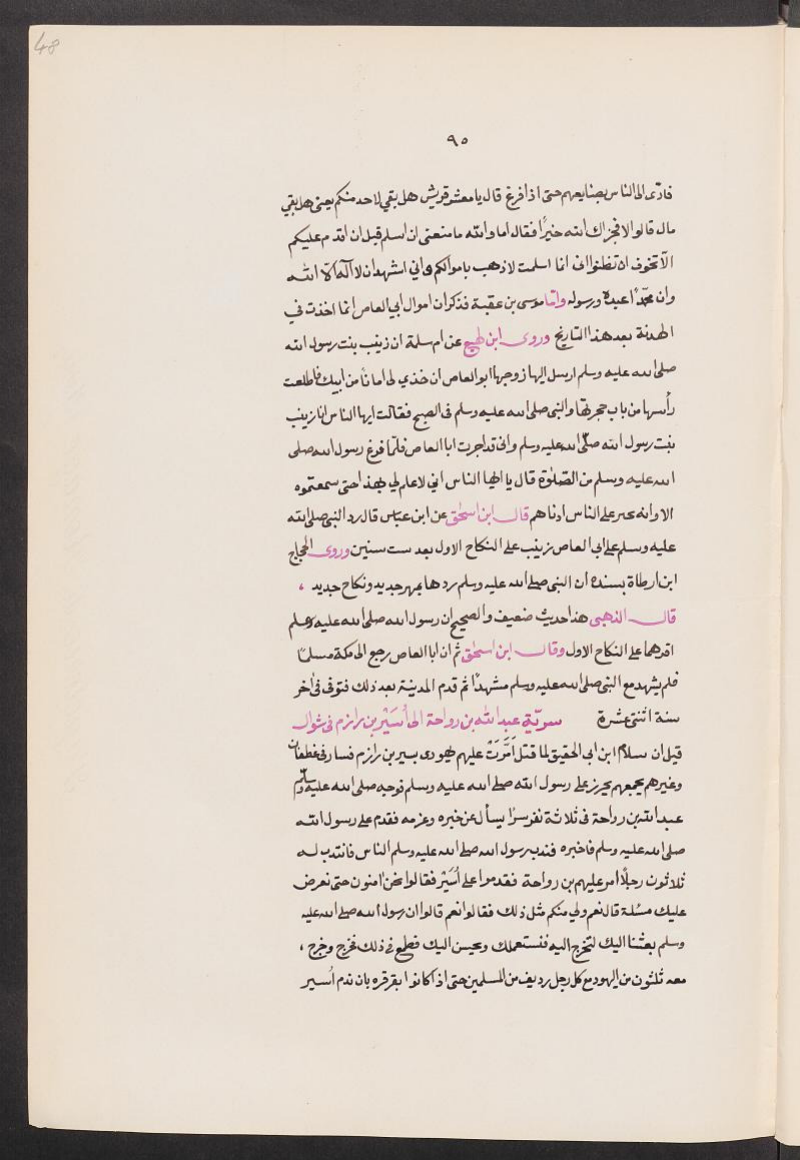 48
٩٥
فادّى الى الناس بضايعهم حتى اذا فرغ قال يا معشر قريش هل بقي لاحد منكم يعنى هل بقي
مال قالوا لا فجزاك الله خيرًا فقال اما والله ما منعنى ان اسلم قبل ان اقدم عليكم
الا تخوف ان تظنوا انى انما اسلمت لاذهب باموالكم وانى اشهد ان لا اله الا الله
وان محمدًا عبده ورسوله واما موسى بن عقبة فذكر ان اموال ابي العاص انما اخذت في
الهدنة بعد هذا التاريخ وروى ابن لهيع عن ام سلمة ان زينب بنت رسول الله
صلى الله عليه وسلم ارسل اليها زوجها ابو العاص ان خذي لى امانًا من ابيك فاطلعت
رأسها من باب حجرتها والنبى صلى الله عليه وسلم فى الصبح فقالت ايها الناس انا زينب
بنت رسول الله صلى الله عليه وسلم وانى قد اجرت ابا العاص فلمّا فرغ رسول الله صلى
الله عليه وسلم من الصلوة قال يا ايها الناس اني لا علم لي بهذا حتى سمعتموه
الا وانه يجير على الناس ادناهم قال ابن اسحٰق عن ابن عبّاس قال رد النبى صلى الله
عليه وسلم على ابى العاص زينب على النكاح الاول بعد ست سنين وروى الحجاج
ابن ارطاة بسنده ان النبى صلى الله عليه وسلم ردها بمهر جديد ونكاح جديد ،
قال الذهبى هذا حديث ضعيف والصحيح ان رسول الله صلى الله عليه وسلم
اقرهما على النكاح الاول وقال ابن اسحٰق ثم ان ابا العاص رجع الى مكة مسلمًا
فلم يشهد مع النبى صلى الله عليه وسلم مشهدًا ثم قدم المدينة بعد ذلك فتوفى فى آخر
سنة اثنتى عشرة سريّة عبد الله بن رواحة الى أُسَيْر بن رازم فى شوال
قيل ان سلام ابن ابى الحقيق لما قتل اَمَّرَتْ عليهم يهودى بسير بن رازم فسار فى غطفان
وغيرهم يجمعهم لحرب على رسول الله صلى الله عليه وسلم فوجه صلى الله عليه وسلم
عبد الله بن رواحة فى ثلاثة نفر سرًا يسأل عن خبره وغرمه فقدم على رسول الله
صلى الله عليه وسلم فاخبره فندب رسول الله صلى الله عليه وسلم الناس فانتدب له
ثلاثون رجلًا امر عليهم بن رواحة فقدموا على أُسَيْر فقالوا نحن امنون حتى نعرض
عليك مسئلة قال نعم ولي منكم مثل ذلك فقالوا نعم قالوا ان رسول الله صلى الله عليه
وسلم بعثنا اليك لتخرج اليه فنستعملك ويحسن اليك فطمع فى ذلك فخرج وخرج ،
معه ثلثون من اليهود مع كل رجل رديف من المسلمين حتى اذا كانوا بقرقره بان ندم أسير